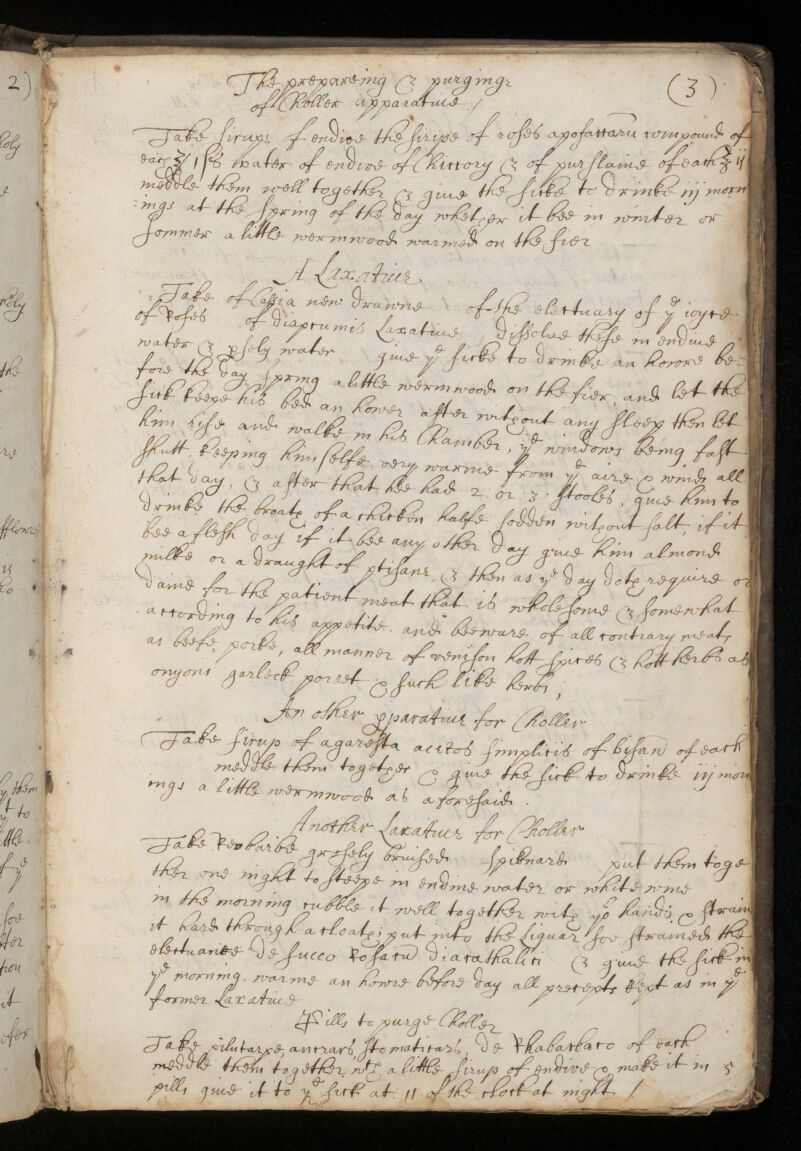 The prepareing & purging
of Choller apparative /
(3)
Take sirups of endive the siripe of roses compound of
each water of endive of Chiccory & of purslaine of each ℥ ij
meddle them well together & give the sicke to drinke iij morn
ings at the spring of the day whether it bee in winter or
sommer a little wermwood warmed on the fier
A Laxative
Take of Cassia new drawne of the electuary of ye ioyce
of Roses of diaprunis Laxative dissolve these in endive
water & psely water give ye sicke to drinke an howre be=
fore the day spring a little wermwood on the fier, and let the
sick keepe his bed an hower after without any sleep then let
him rise and walke in his Chamber, ye windows being fast
shutt, keeping himselfe very warme from ye aire & winds all
that day, & after that hee had 2 or 3 stooles, give him to
drinke the broath of a chicken halfe sodden without salt, if it
bee a flesh day if it bee any other day give him almond
milke or a draught of ptisane, & then as ye day doth require or
dame for the patient meat that is wholesome & somewhat
according to his appetite and beeware of all contrary meats
as beefe, porke, all manner of venison hott spices & hott herbs as
onyons garleck poreet & such like herbs;
An other pparative for Choller
Take sirup of acetos simplicis of of each
meddle them together & give the sick to drinke iij morn
ings a little wermwood as aforesaid.
Another Laxative for Choller
Take Reobarbe grosely bruised Spiknard put them toge
ther one night to steepe in endive water or white wine
in the morning rubble it well together with yo hands, & strain
it hard through a cloath; put into the liquar soe strained the
electuaree De succo Rosacu diacatholici & give the sick in
ye morning, warme an howre before day all precepts kept as in ye
former Laxative
Pills to purge Choller
Take De Rhabarbaro of each
meddle them together wth a little sirup of endive & make it in 5
pills give it to ye sick at 11 of the clock at night /